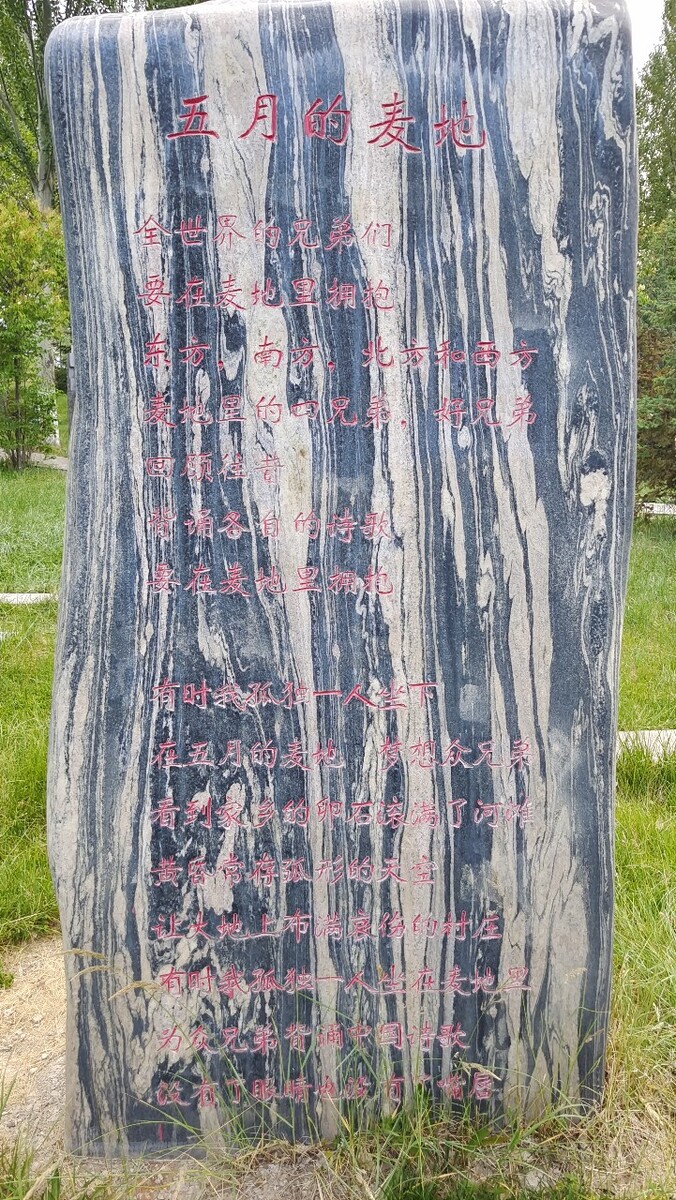 五月的麦地
全世界的兄弟们
要在麦地里拥抱
东方，南方，北方和西方
麦地里的四兄弟，好兄弟
回顾往昔
背诵各自的诗歌
要在麦地里拥抱
有时我孤独一人坐下
在五月的麦地 梦想众兄弟
看到家乡的卵石滚满了河滩
黄昏常存弧形的天空
让大地上布满哀伤的村庄
有时我孤独一人坐在麦地里
为众兄弟背诵中国诗歌
没有了眼睛也没有了嘴唇